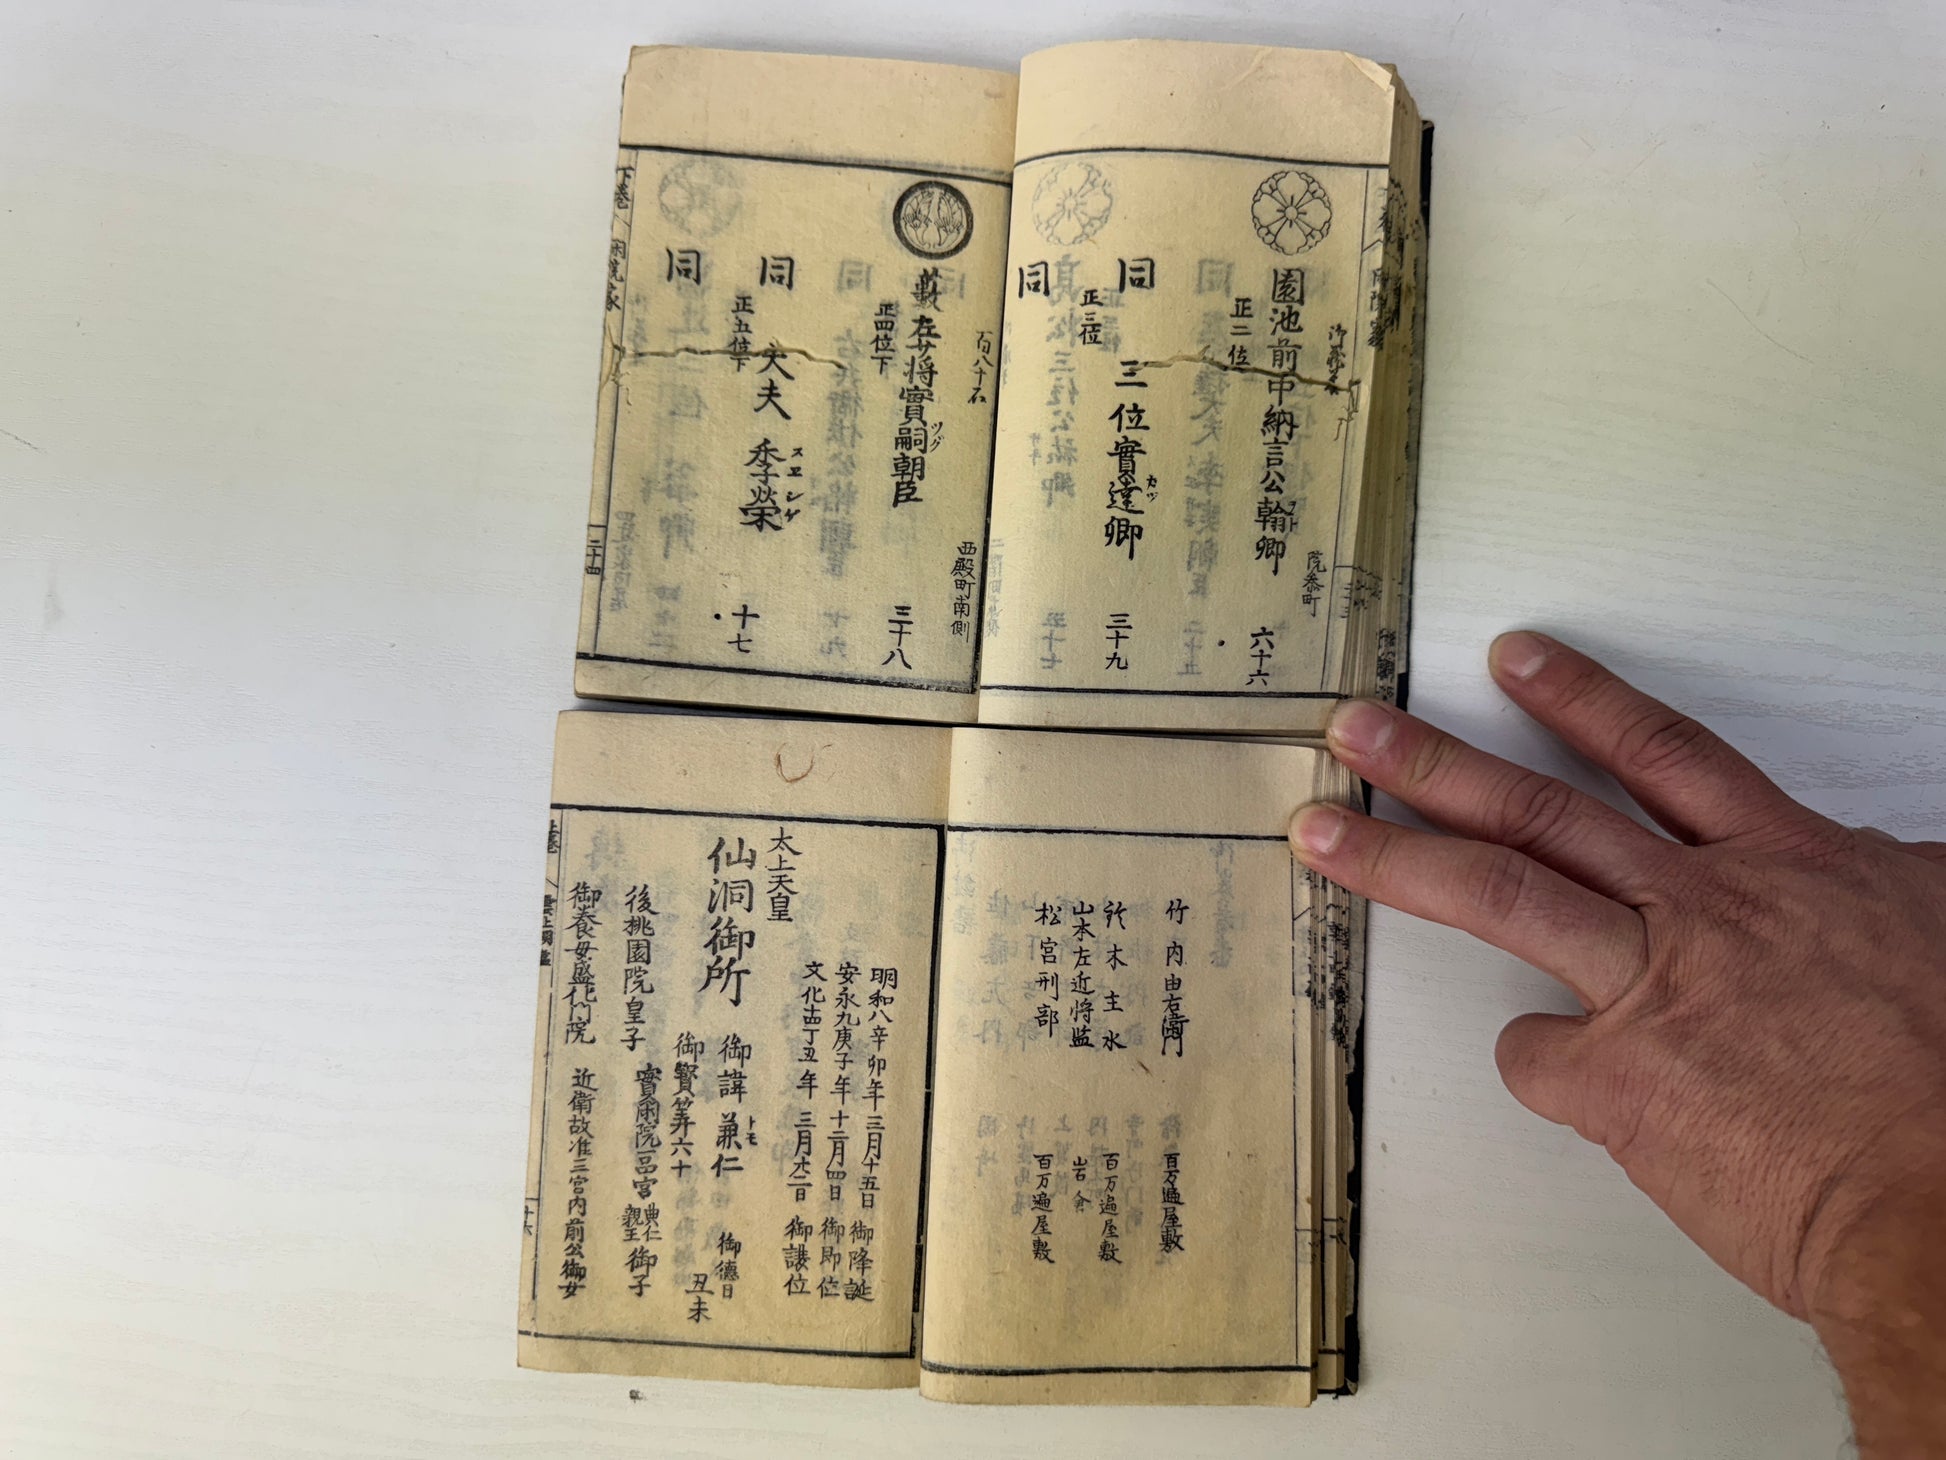 御藤原
院参町
園池前中納言公翰卿
六十六
正二位
同
三位實達卿
カツ
三十九
正三位
同
百八十石
西殿町南側
藪左少将實嗣朝臣
ツグ
三十八
正四位下
同
大夫季榮
スエシゲ
十七
正五位下
同
下巻
二十四
竹内由右衛門
百万遍屋敷
鈴木主水
百万遍屋敷
山本左近将監
岩倉
松宮刑部
百万遍屋敷
明和八辛卯年三月十五日御降誕
安永九庚子年十二月四日御即位
文化十四丁丑年三月廿二日御譲位
太上天皇
仙洞御所
御諱兼仁
トモ
御徳日
丑未
御寶筭六十
後桃園院皇子
實閑院一品宮典仁親王御子
御養母盛化門院
近衛故准三宮内前公御女
雲上明鑑